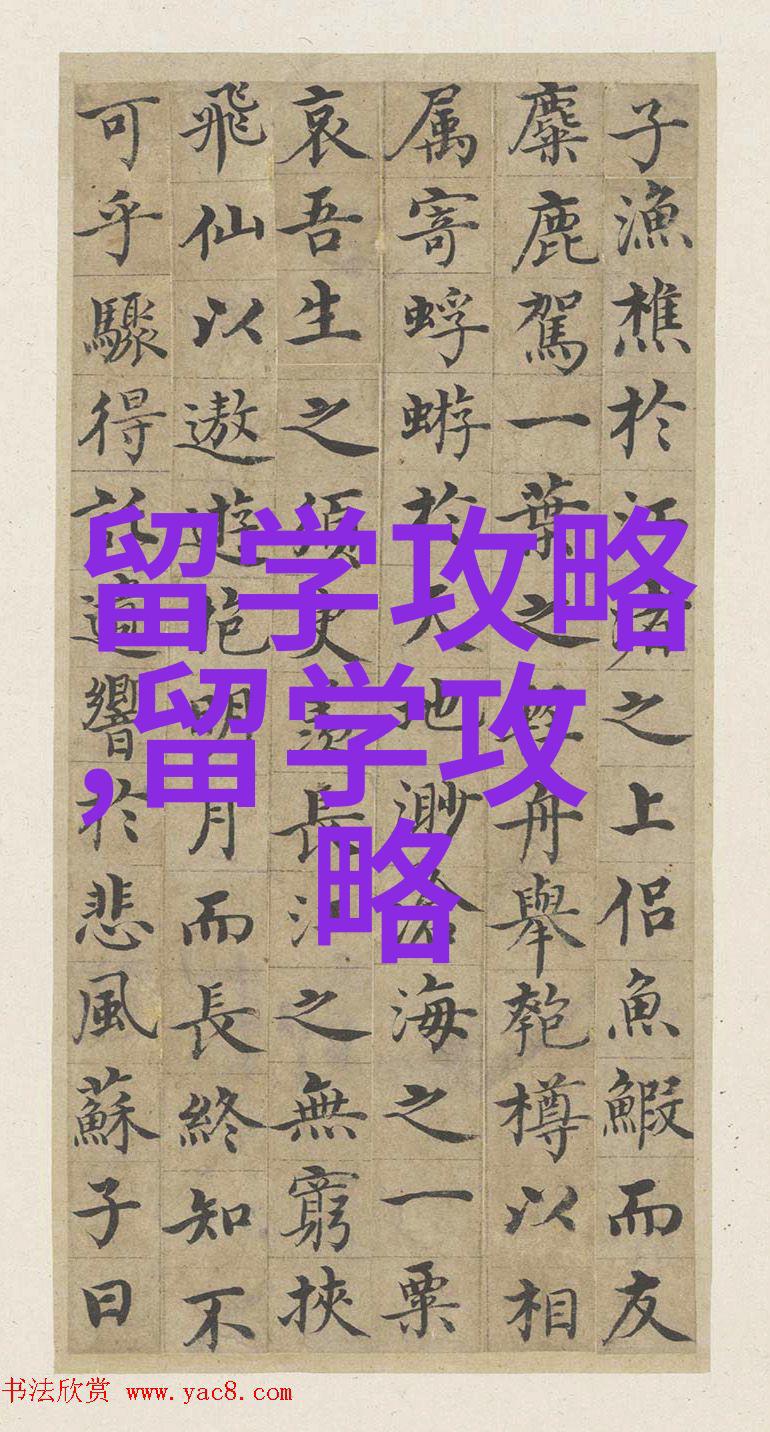 子漁樵於江渚之上侶魚鰕而友
麋鹿駕一葉之輕舟舉匏樽以相
属寄蜉蝣於天地渺滄海之一粟
哀吾生之須臾羨長江之無窮挾
飛仙以遨遊抱明月而長終知不
可乎驟得託遺響於悲風蘇子曰
留学攻略
,留学攻
略
书法欣赏 www.yac8.com